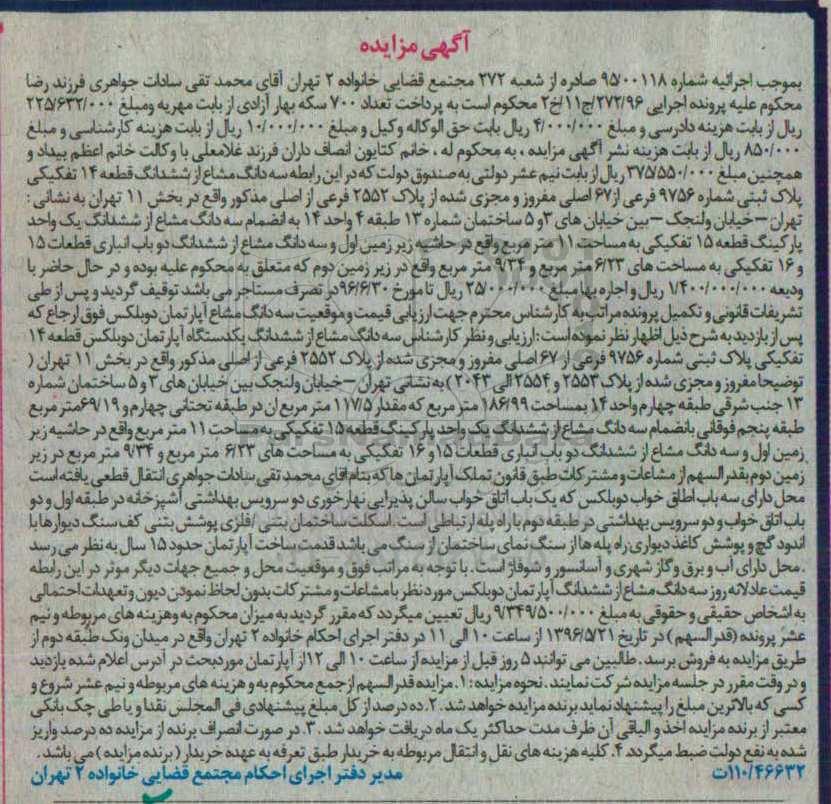 آگهی مزایده
بموجب اجرائیه شماره ۹۵/۰۰۱۱۸ صادره از شعبه ۲۷۲ مجتمع قضایی خانواده ۲ تهران آقای محمد تقی سادات جواهری فرزند رضا
محکوم علیه پرونده اجرایی ۲۷۲/۹۶/ج۱۱/خ۲ محکوم است به پرداخت تعداد ۷۰۰ سکه بهار آزادی از بابت مهریه ومبلغ ۲۲۵/۶۳۲/۰۰۰
ریال از بابت هزینه دادرسی و مبلغ ۴/۰۰۰/۰۰۰ ریال بابت حق الوکاله وکیل و مبلغ ۱۰/۰۰۰/۰۰۰ ریال از بابت هزینه کارشناسی و مبلغ
۸۵۰/۰۰۰ ریال از بابت هزینه نشر آگهی مزایده ، به محکوم له ، خانم کتایون انصاف داران فرزند غلامعلی با وکالت خانم اعظم بیداد و
همچنین مبلغ ۳۷۵/۵۵۰/۰۰۰ ریال از بابت نیم عشر دولتی به صندوق دولت که در این رابطه سه دانگ مشاع از ششدانگ قطعه ۱۴ تفکیکی
پلاک ثبتی شماره ۹۷۵۶ فرعی از ۶۷ اصلی مفروز و مجزی شده از پلاک ۲۵۵۲ فرعی از اصلی مذکور واقع در بخش ۱۱ تهران به نشانی :
تهران – خیابان ولنجک – بین خیابان های ۳ و ۵ ساختمان شماره ۱۳ طبقه ۴ واحد ۱۴ به انضمام سه دانگ مشاع از ششدانگ یک واحد
پارکینگ قطعه ۱۵ تفکیکی به مساحت ۱۱ متر مربع واقع در حاشیه زیر زمین اول و سه دانگ مشاع از ششدانگ دو باب انباری قطعات ۱۵
و ۱۶ تفکیکی به مساحت های ۶/۲۳ متر مربع و ۹/۳۴ متر مربع واقع در زیر زمین دوم که متعلق به محکوم علیه بوده و در حال حاضر با
ودیعه ۱/۴۰۰/۰۰۰/۰۰۰ ریال و اجاره بها مبلغ ۲۵/۰۰۰/۰۰۰ ریال تا مورخ ۹۶/۶/۳۰ در تصرف مستاجر می باشد توقیف گردید و پس از طی
تشریفات قانونی و تکمیل پرونده مراتب به کارشناس محترم جهت ارزیابی قیمت و موقعیت سه دانگ مشاع آپارتمان دوبلکس فوق ارجاع که
پس از بازدید به شرح ذیل اظهار نظر نموده است : ارزیابی و نظر کارشناس سه دانگ مشاع از ششدانگ یکدستگاه آپارتمان دوبلکس قطعه ۱۴
تفکیکی پلاک ثبتی شماره ۹۷۵۶ فرعی از ۶۷ اصلی مفروز و مجزی شده از پلاک ۲۵۵۲ فرعی از اصلی مذکور واقع در بخش ۱۱ تهران (
توضیحا مفروز و مجزی شده از پلاک ۲۵۵۳ و ۲۵۵۴ الی ۲۰۴۳ ) به نشانی تهران – خیابان ولنجک بین خیابان های ۳ و ۵ ساختمان شماره
۱۳ جنب شرقی طبقه چهارم واحد ۱۴ بمساحت ۱۸۶/۹۹ متر مربع که مقدار ۱۱۷/۵ متر مربع ان در طبقه تحتانی چهارم و ۶۹/۱۹ متر مربع
طبقه پنجم فوقانی بانضمام سه دانگ مشاع از ششدانگ یک واحد پارکینگ قطعه ۱۵ تفکیکی به مساحت ۱۱ متر مربع واقع در حاشیه زیر
زمین اول و سه دانگ مشاع از ششدانگ دو باب انباری قطعات ۱۵ و ۱۶ تفکیکی به مساحت های ۶/۲۳ متر مربع و ۹/۳۴ متر مربع در زیر
زمین دوم بقدر السهم از مشاعات و مشترکات طبق قانون تملک آپارتمان ها که بنام اقای محمد تقی سادات جواهری انتقال قطعی یافته است
محل دارای سه باب اطاق خواب دوبلکس که یک باب اتاق خواب سالن پذیرایی نهارخوری دو سرویس بهداشتی آشپزخانه در طبقه اول و دو
باب اتاق خواب و دو سرویس بهداشتی در طبقه دوم با راه پله ارتباطی است . اسکلت ساختمان بتنی /فلزی پوشش بتنی کف سنگ دیوارها با
اندود گچ و پوشش کاغذ دیواری راه پله ها از سنگ نمای ساختمان از سنگ می باشد قدمت ساخت آپارتمان حدود ۱۵ سال به نظر می رسد
. محل دارای آب و برق و گاز شهری و آسانسور و شوفاژ است . با توجه به مراتب فوق و موقعیت محل و جمیع جهات دیگر موثر در این رابطه
قیمت عادلانه روز سه دانگ مشاع از ششدانگ آپارتمان دوبلکس مورد نظر با مشاعات و مشترکات بدون لحاظ نمودن دیون و تعهدات احتمالی
به اشخاص حقیقی و حقوقی به مبلغ ۹/۳۴۹/۵۰۰/۰۰۰ ریال تعیین میگردد که مقرر گردید به میزان محکوم به و هزینه های مربوطه و نیم
عشر پرونده (قدر السهم ) در تاریخ ۱۳۹۶/۵/۲۱ از ساعت ۱۰ الی ۱۱ در دفتر اجرای احکام خانواده ۲ تهران واقع در میدان ونک طبقه دوم از
طریق مزایده به فروش برسد . طالبین می توانند ۵ روز قبل از مزایده از ساعت ۱۰ الی ۱۲ از آپارتمان موردبحث در آدرس اعلام شده بازدید
و در وقت مقرر در جلسه مزایده شرکت نمایند . نحوه مزایده : ۱. مزایده قدر السهم از جمع محکوم به و هزینه های مربوطه و نیم عشر شروع و
کسی که بالاترین مبلغ را پیشنهاد نماید برنده مزایده خواهد شد . ۲. ده درصد از کل مبلغ پیشنهادی فی المجلس نقدا و یا طی چک بانکی
معتبر از برنده مزایده اخذ و الباقی آن ظرف مدت حداکثر یک ماه دریافت خواهد شد . ۳. در صورت انصراف برنده از مزایده ده درصد واریز
شده به نفع دولت ضبط میگردد ۴. کلیه هزینه های نقل و انتقال مربوطه به خریدار طبق تعرفه به عهده خریدار ( برنده مزایده ) می باشد .
۱۱۰/۴۶۶۳۲ت مدیر دفتر اجرای احکام مجتمع قضایی خانواده ۲ تهران